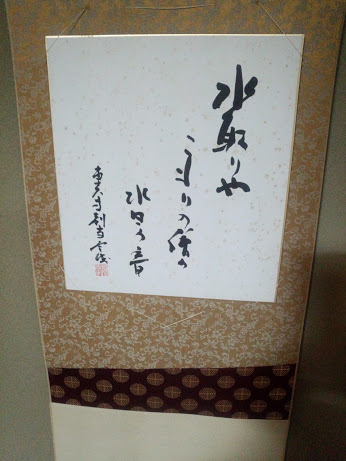 水取りや
こもりの僧の
沓の音
東大寺別当